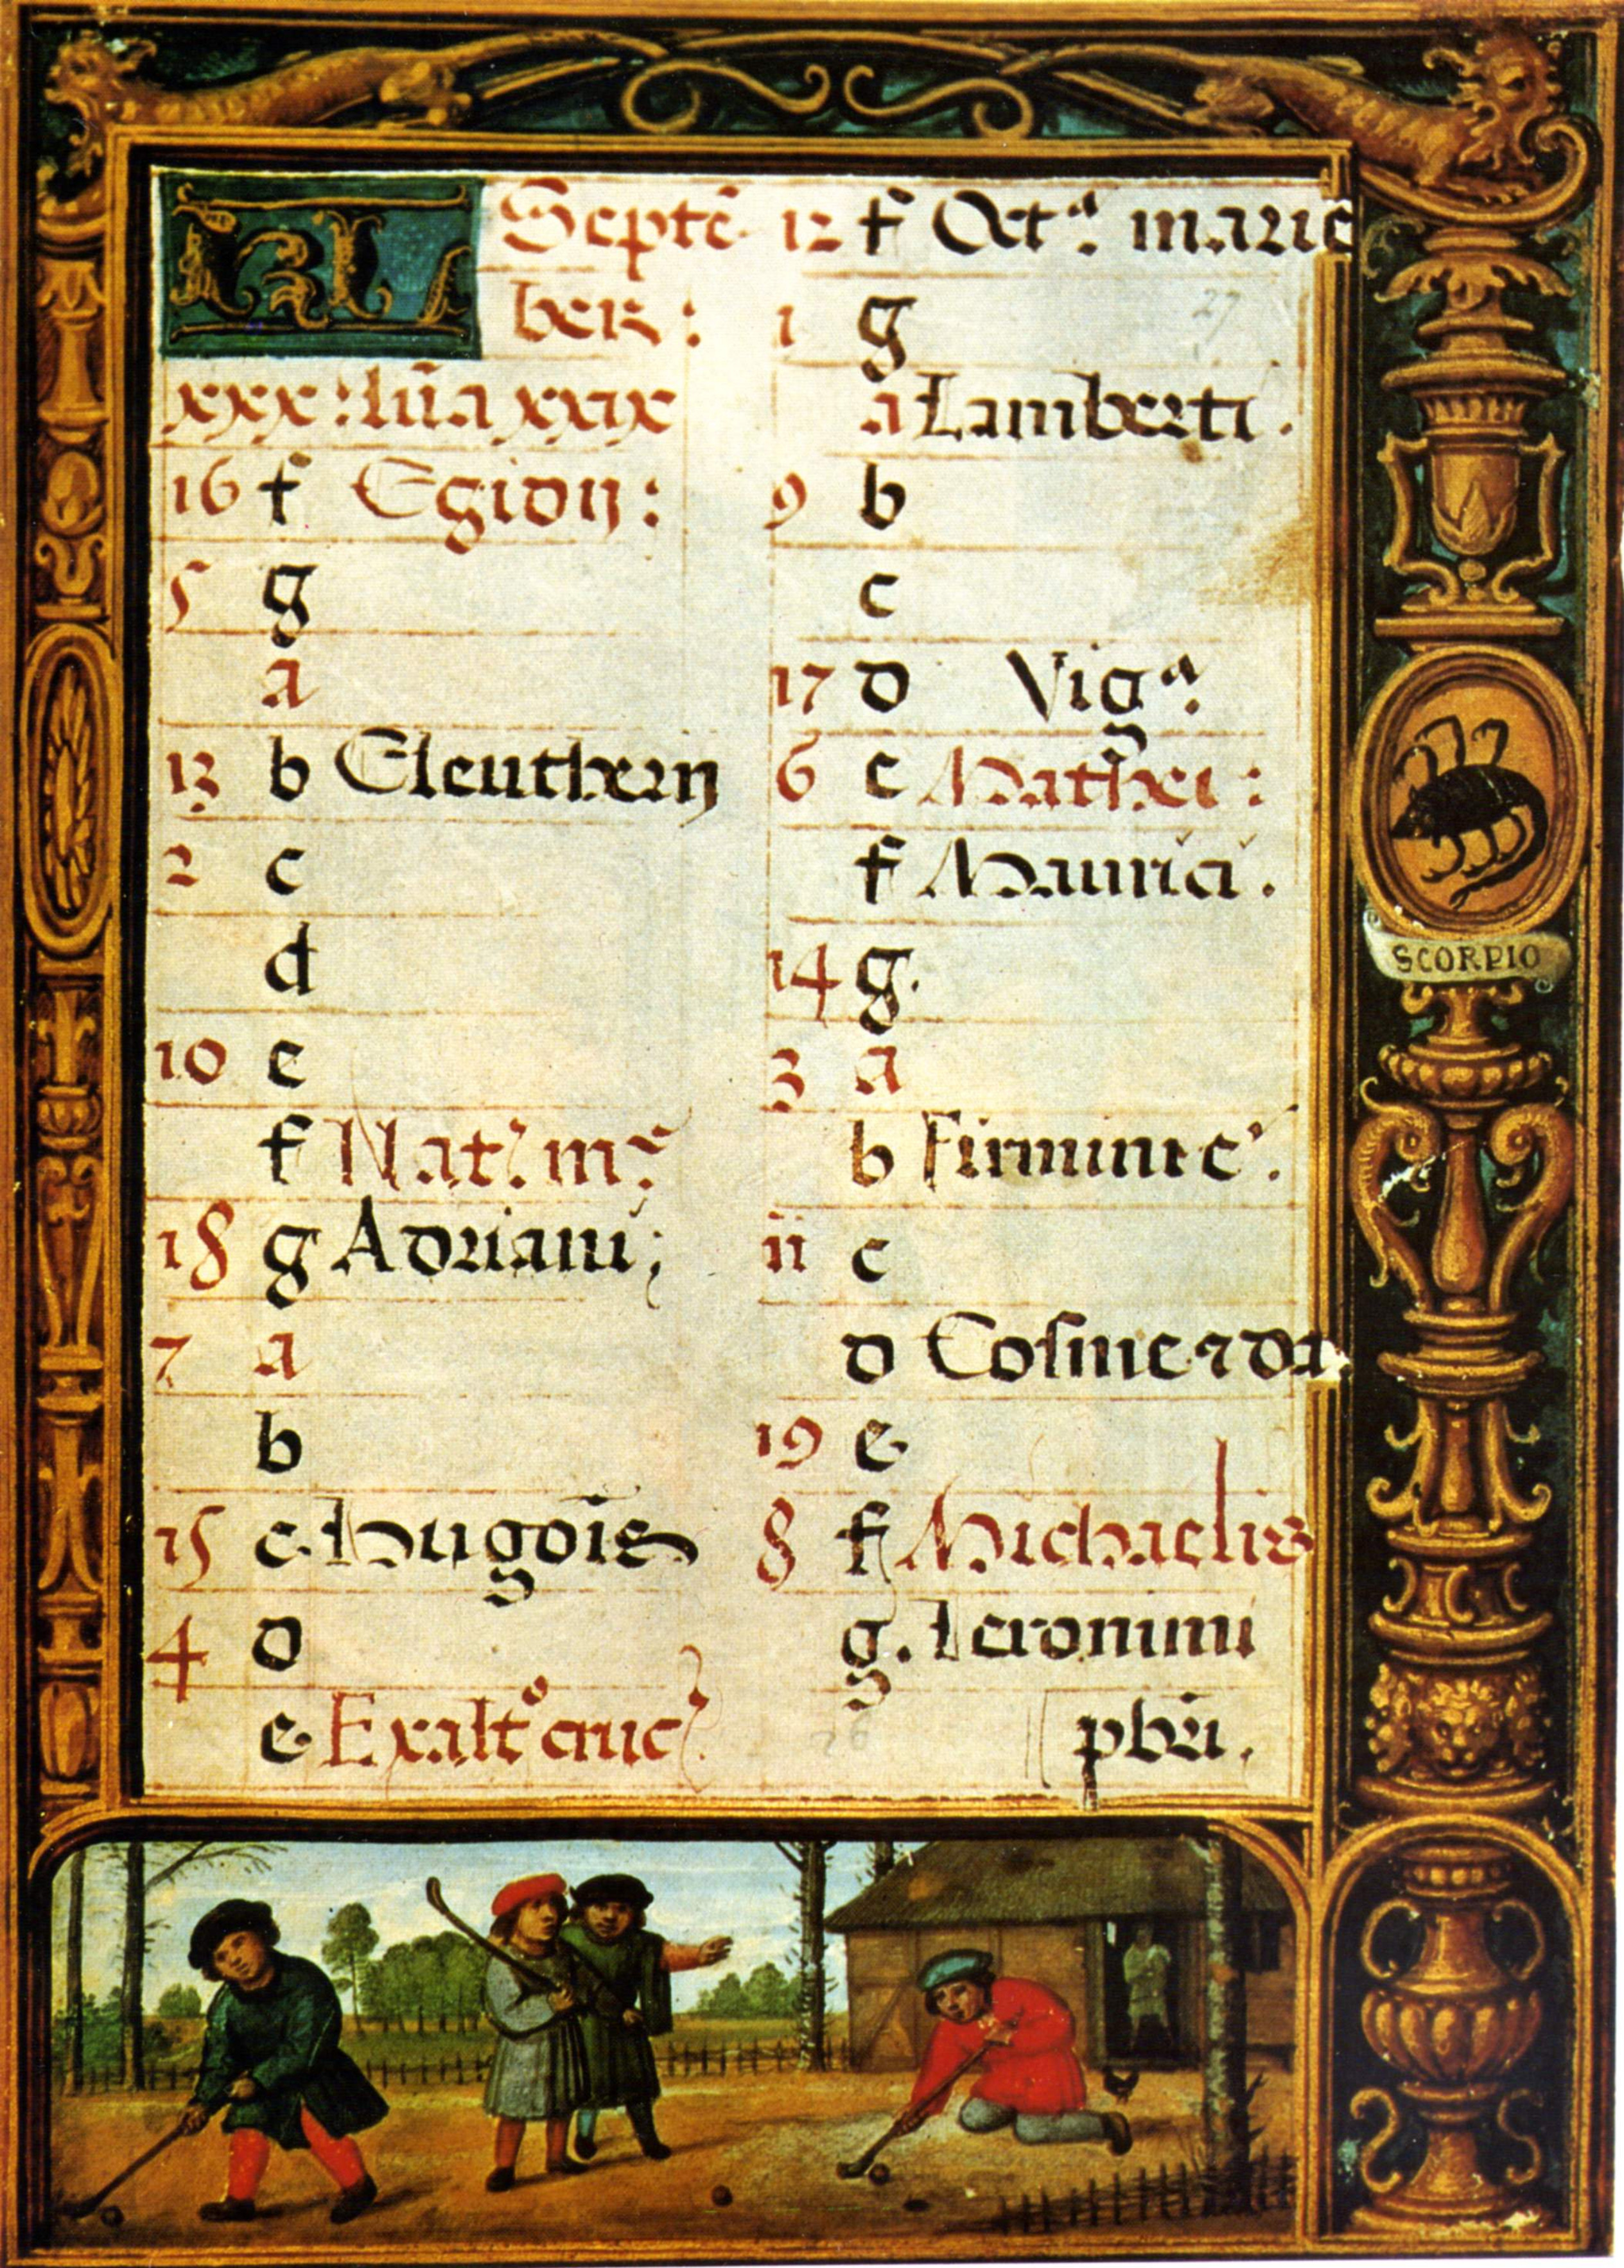 KL
Septē
ber :
xxx : lūa xxix
16 f Egidij :
5 g
a
13 b Eleutherij
2 c
d
10 e
f Nat. mᵉ
18 g Adriani ;
7 a
b
15 c Hugōis
4 d
e Exaltº cruc
12 f Octª. marie
1 g
27
a Lamberti .
9 b
c
17 d Vigª.
6 e Mathei :
f Mauricii .
14 g .
3 a
b Firmini e' .
11 c
d Cosme ⁊ da .
19 e
8 f Michaelis
g . Ieronimi
pbri .
26
SCORPIO